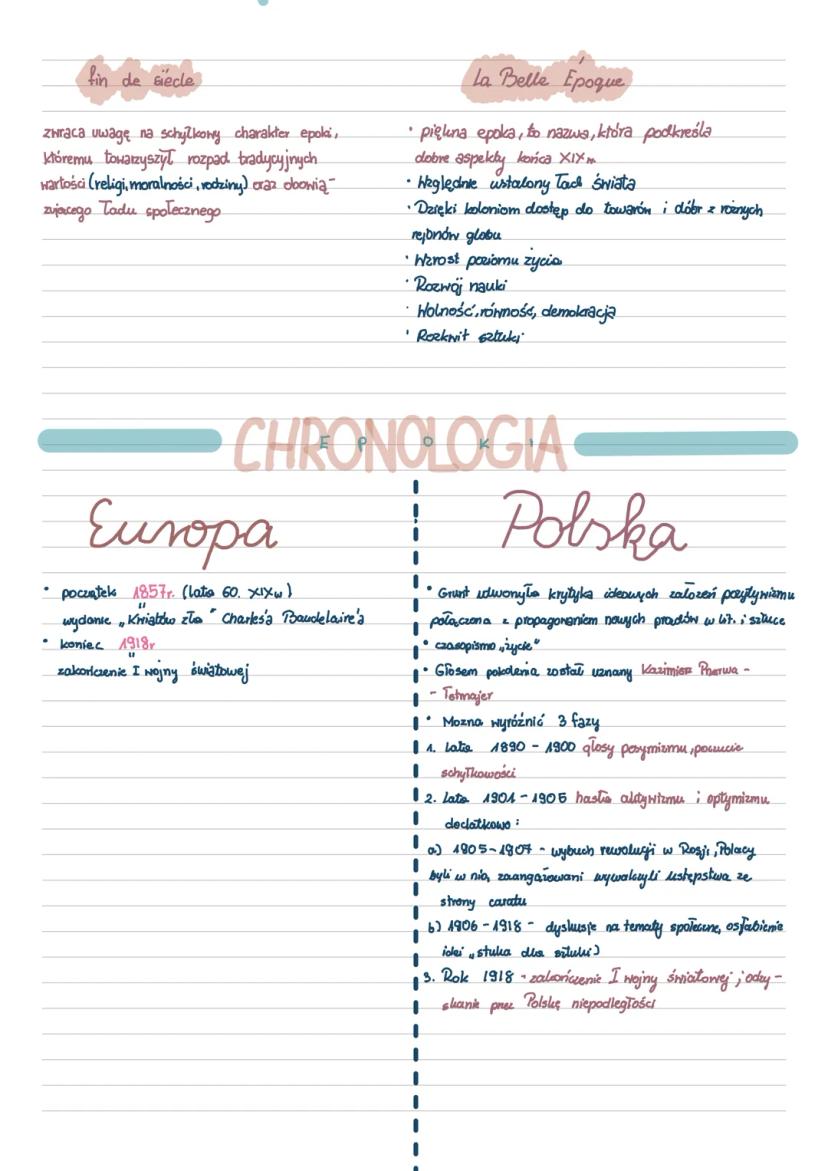 fin de siécle
zwraca uwagę na schyłkowy charakter epoki,
któremu towarzyszył rozpad tradycyjnych
wartości (religi, moralności, rodziny) oraz obowią-
zującego ładu społecznego
La Belle Époque
· piękna epoka, to nazwa, która podkreśla
dobre aspekty końca XIXw.
· Względnie ustalony ład świata
· Dzięki koloniom dostęp do towarów i dóbr z różnych
rejonów globu
· Wzrost poziomu życia
· Rozwój nauki
· Wolność, równość, demokracja
· Rozkwit sztuki
CHRONOLOGIA
E P O K I
Europa
• początek 1857r. (lata 60. XIXw)
"
wydanie „Kwiatów zła" Charles'a Baudelaire'a
• koniec 1918r
"
zakończenie I wojny światowej
Polska
• Grunt utworzyła krytyka ideowych założeń pozytywizmu
połączona z propagowaniem nowych prądów w lit. i sztuce
• czasopismo „życie"
• Głosem pokolenia został uznany Kazimierz Przerwa -
- Tetmajer
• Można wyróżnić 3 fazy
1. Lata 1890 - 1900 głosy pesymizmu, poczucie
schyłkowości
2. Lata 1901 - 1905 hasła aktywizmu i optymizmu
dodatkowo:
a) 1905-1907 - wybuch rewolucji w Rosji, Polacy
byli w nią zaangażowani wywalczyli ustępstwa ze
strony caratu
b) 1906 - 1918 - dyskusje na tematy społeczne, osłabienie
idei „stuka dla sztuki)
3. Rok 1918 - zakończenie I wojny światowej; odzy -
skanie przez Polskę niepodległości